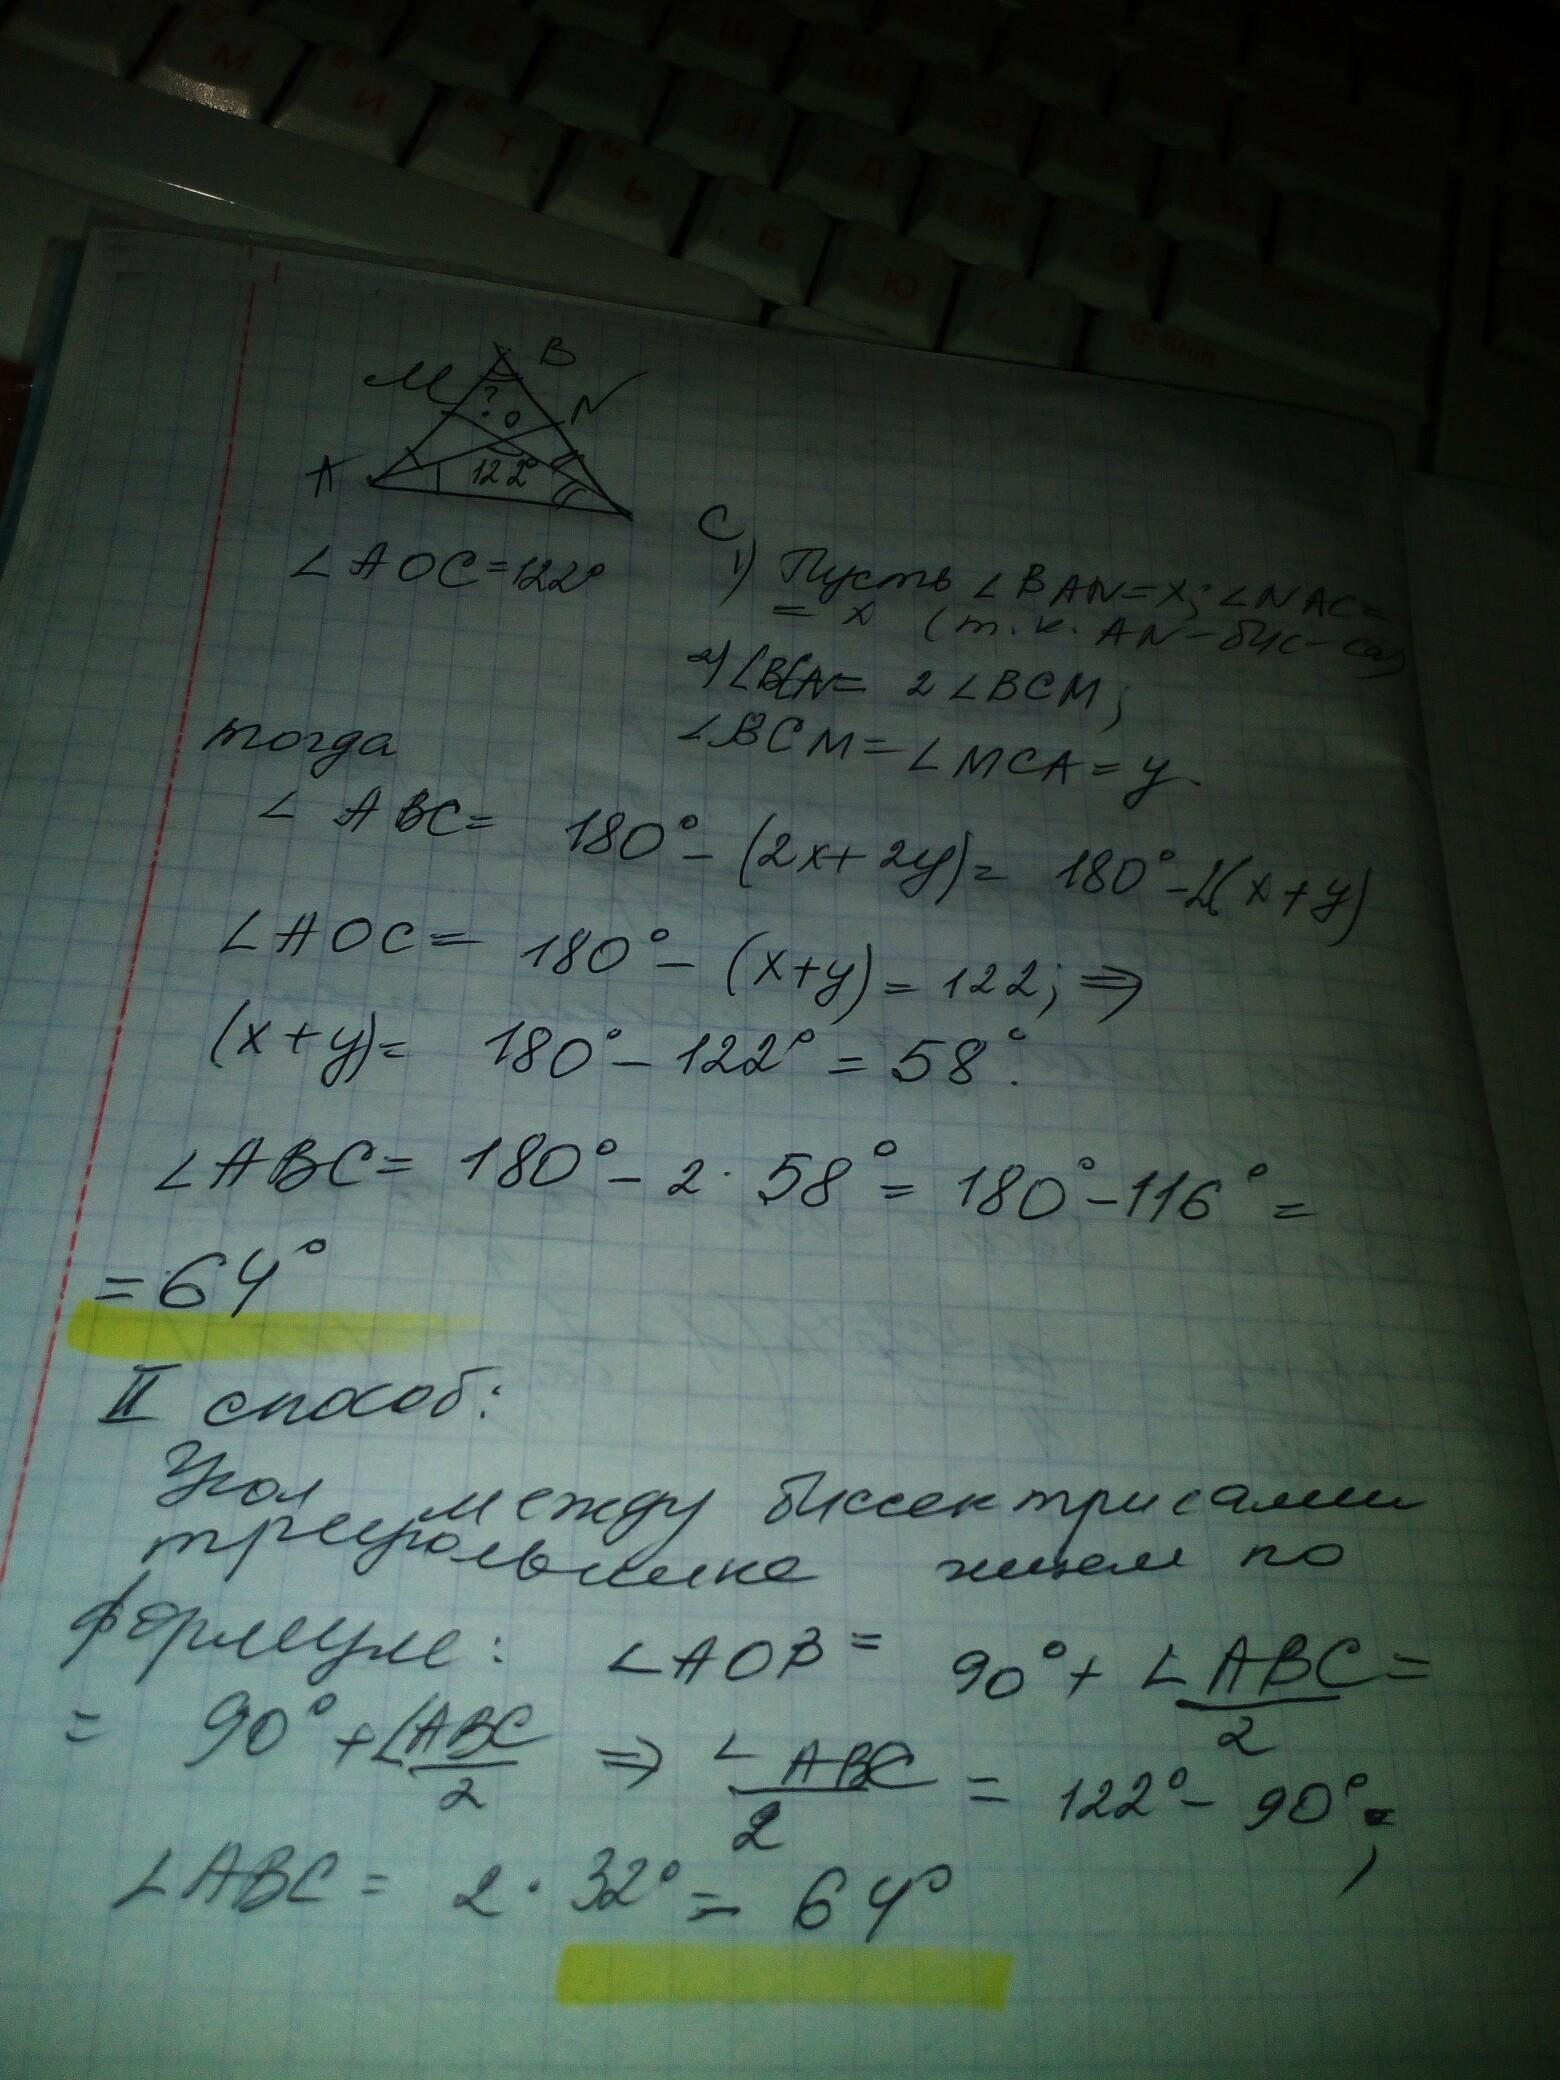 М
И
Т
Ь
Б
Ю
Л
Д
Ж
Э
Shift
B
M
?
O
N
A
122°
C
∠AOC=122°
1) Пусть ∠BAN=x; ∠NAC=
= x (т.к. AN-бис-са)
2) ∠BCA= 2∠BCM;
∠BCM=∠MCA=y.
тогда
∠ABC= 180°-(2x+2y)= 180°-2(x+y)
∠AOC= 180°-(x+y)=122; ⇒
(x+y)= 180°-122°=58°.
∠ABC= 180°-2·58°=180°-116°=
=64°
II способ:
Угол между биссектрисами
треугольника ищем по
формуле: ∠AOB= 90°+∠ABC/2=
= 90°+∠ABC/2 ⇒ ∠ABC/2 = 122°-90°;
∠ABC= 2·32°= 64°